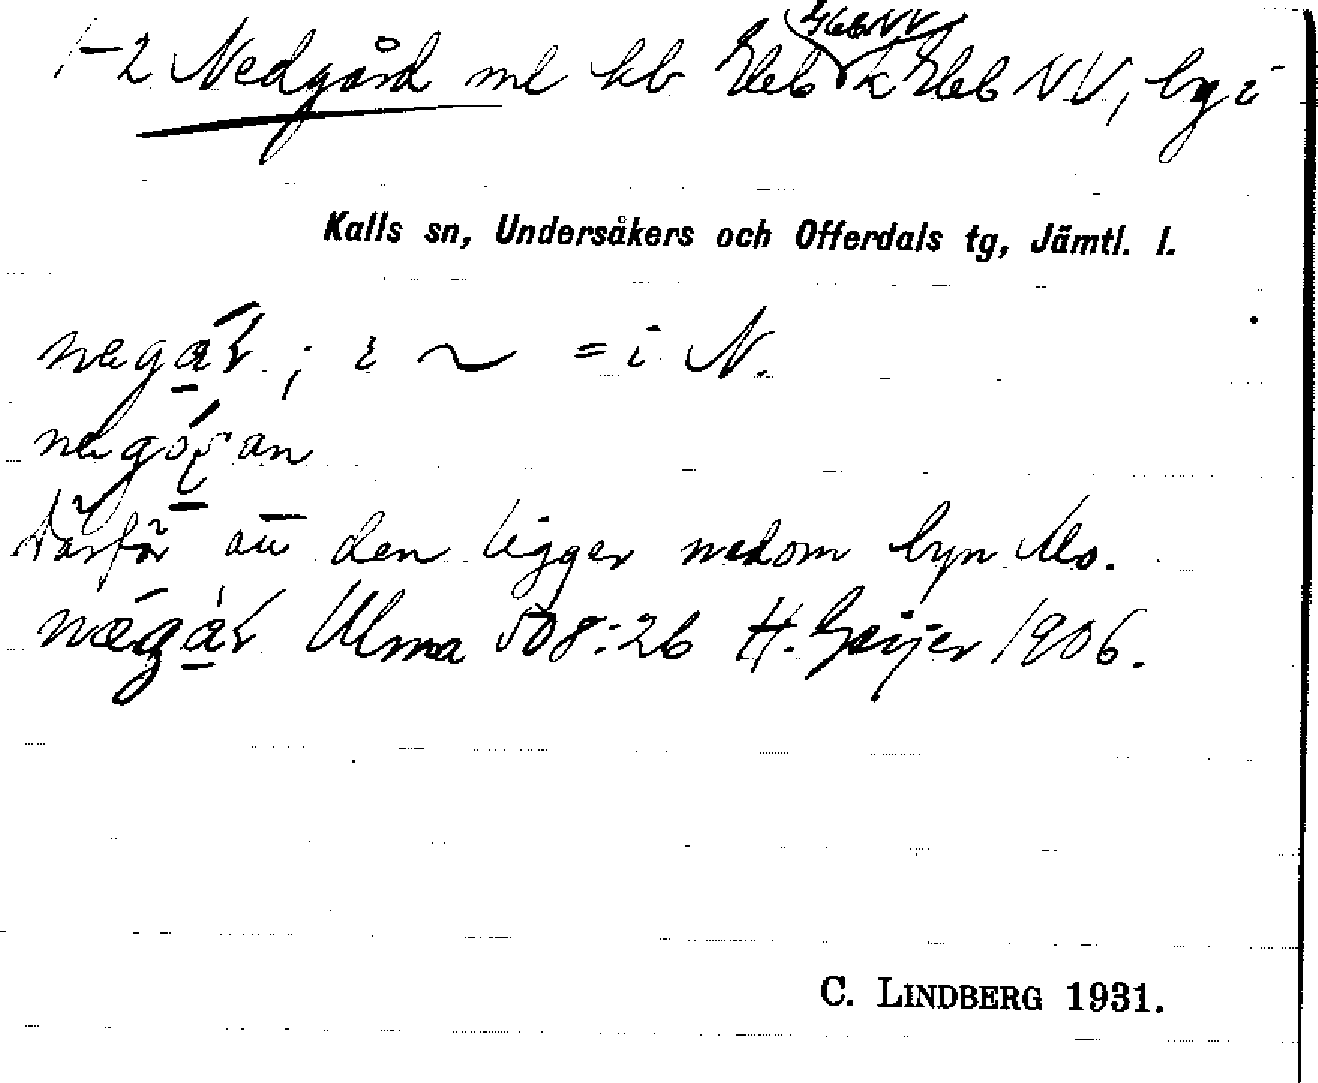 1-2 Nedgård ml kb NV, by i
Kalls sn, Undersåkers och Offerdals tg, Jämtl. l.
negár; i ~ = i N.
Därför att den ligger nedom byn Mo.
nægár Ulma 508:26 H. Geijer 1906.
C. LINDBERG 1931.